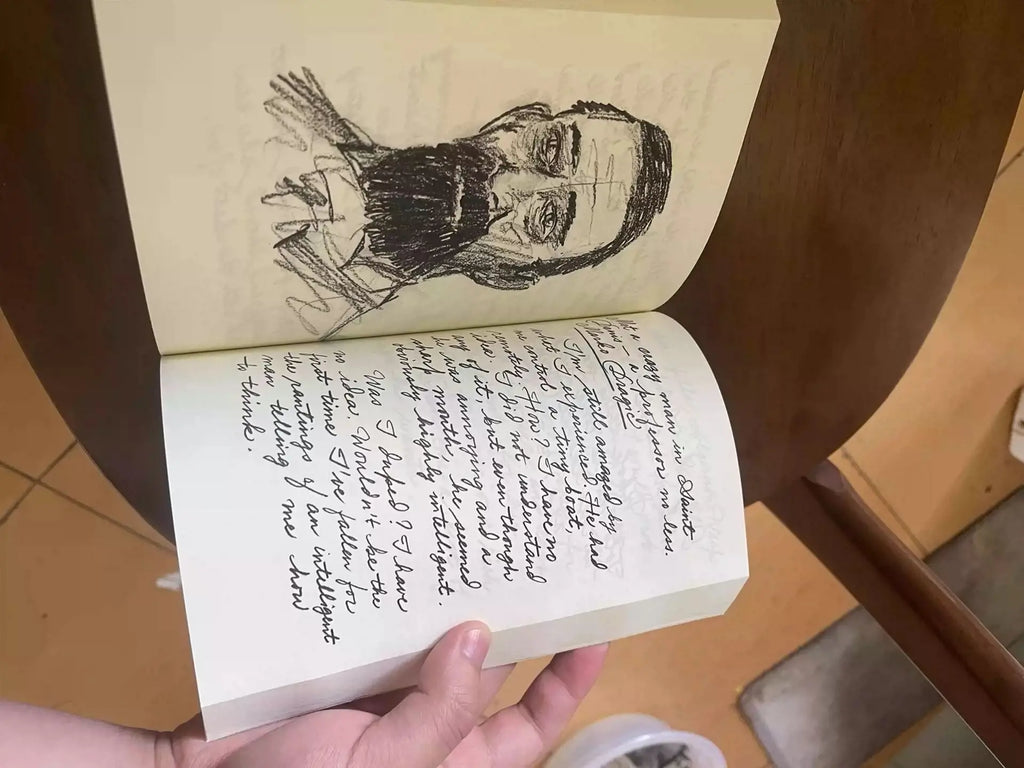 Met a crazy man in Saint
Denis - a professor no less.
Marko Dragic
I'm still amazed by
what I experienced. He had
me control a tiny boat,
remotely. How? I have no
idea. I did not understand
any of it, but even though
he was annoying and a
mouth, he seemed
obviously highly intelligent.
Was I duped? I have
no idea. Wouldn't be the
first time I've fallen for
the rantings of an intelligent
man telling me how
to think.